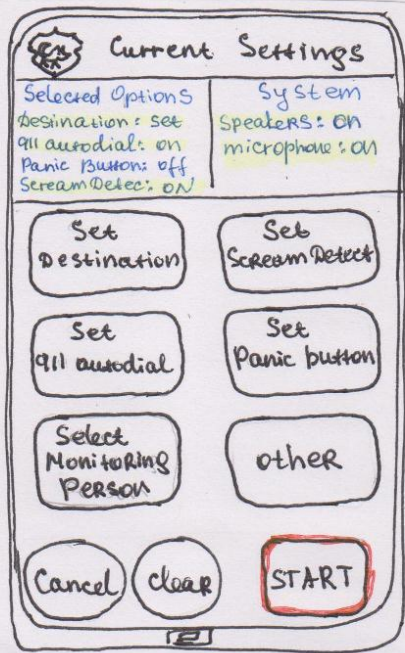 Current Settings
Selected Options
Destination: set
911 autodial: on
Panic Button: off
Scream Detec: ON
System
Speakers: on
microphone: on
Set
Destination
Set
Scream Detect
Set
911 autodial
Set
Panic button
Select
Monitoring
Person
other
Cancel
clear
START